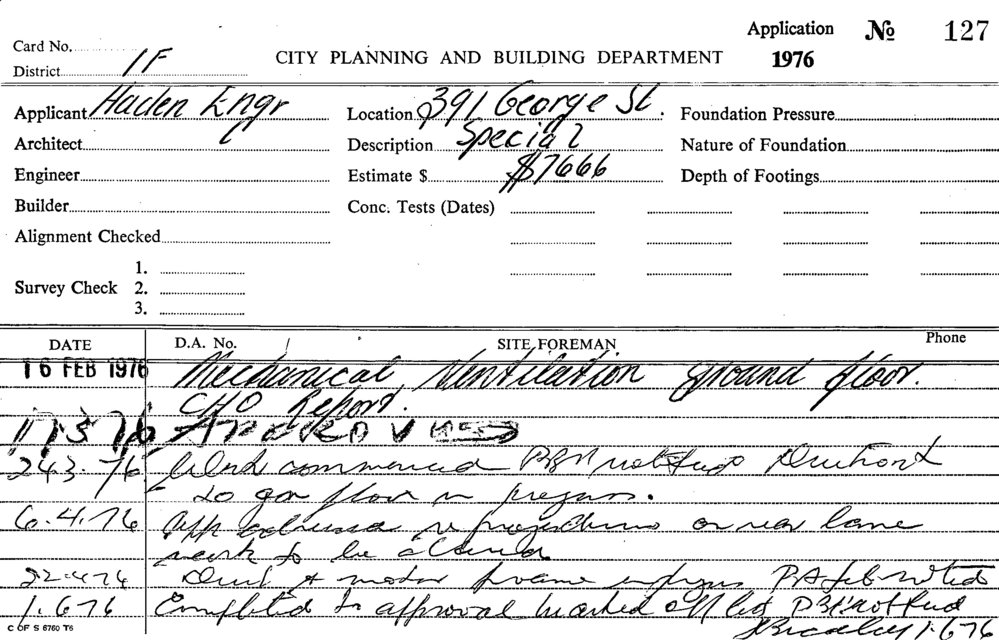 Card No.
District 1F
CITY PLANNING AND BUILDING DEPARTMENT
Application № 127
1976
Applicant Haden Engr
Architect
Engineer
Builder
Alignment Checked
Survey Check 1.
2.
3.
Location 391 George St.
Description Special
Estimate $ $7666
Conc. Tests (Dates)
Foundation Pressure
Nature of Foundation
Depth of Footings
DATE D.A. No. SITE FOREMAN Phone
16 FEB 1976 Mechanical Ventilation ground floor.
CHO Report.
17 3 76 APPROVED
24.3.76 Work commenced
floor in progress.
6.4.76 App on rear lane
work to be
22.4.76 Duct & motor
1.6.76 Completed to approval marked off
Bradley 1.6.76
C OF S 6760 T6